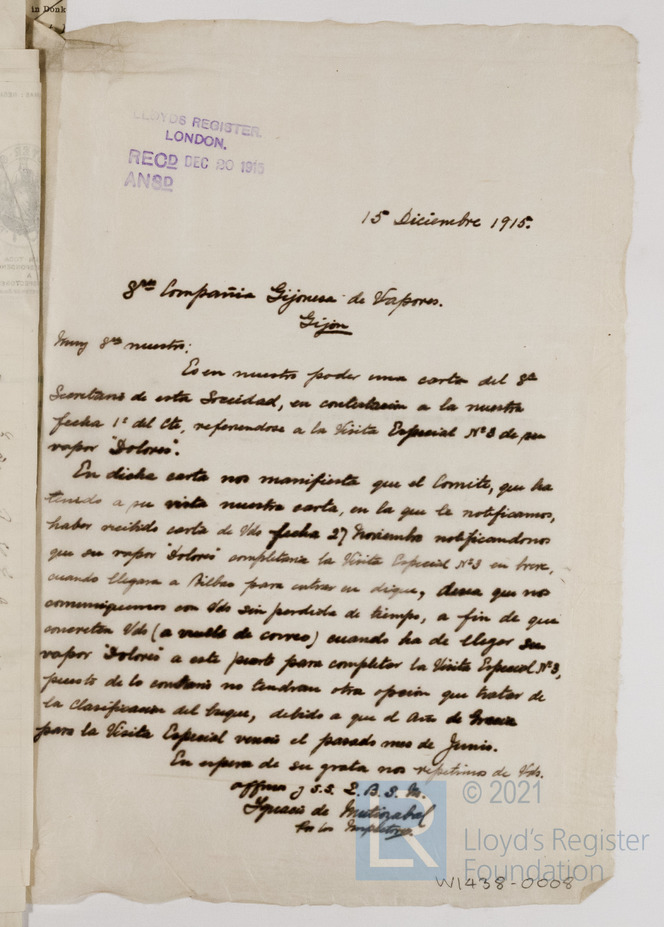 in Donk
LLOYD'S REGISTER.
LONDON.
RECD DEC 20 1915
ANSD
15 Diciembre 1915.
Sres Compañia Gijonesa de Vapores.
Gijon
Muy Sres nuestros:
Es en nuestro poder una carta del Sr
Secretario de esta Sociedad, en contestacion a la nuestra
fecha 1º del Cte, refiriendose a la Visita Especial Nº3 de su
vapor "Dolores".
En dicha carta nos manifiesta que el Comite, que ha
tenido a su vista nuestra carta, en la que le notificamos,
haber recibido carta de Vds fecha 27 Noviembre notificandonos
que su vapor "Dolores" completaria la Visita Especial Nº3 en breve,
cuando llegara a Bilbao para entrar en dique, desea que nos
comuniquemos con Vds sin perdida de tiempo, a fin de que
concreten Vds (a vuelta de correo) cuando ha de llegar su
vapor "Dolores" a este puerto para completar la Visita Especial Nº3,
puesto de lo contrario no tendran otra opcion que tratar de
la Clasificacion del buque, debido a que el Año de Gracia
para la Visita Especial vencio el pasado mes de Junio.
En espera de su grata nos repetimos de Vds.
affmos y S.S. Q.B.S.M.
Ignacio de
Por los Inspectores.
© 2021
LR
Lloyd's Register
Foundation
W1438-0008